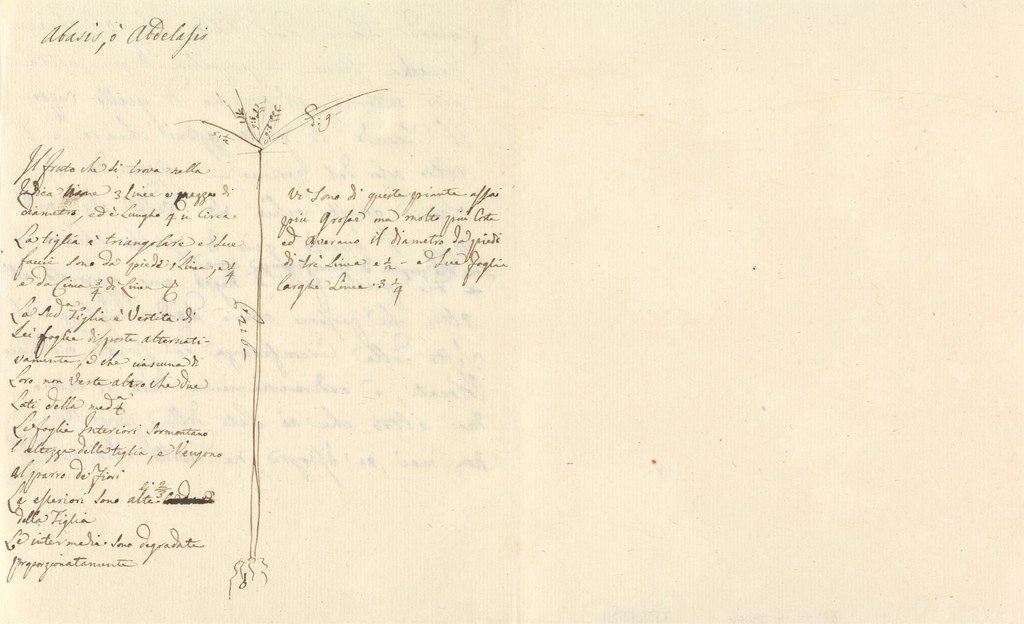 Abasis, ò Abdelasis
5 1/2
P: 9
Il fruto che si trova nella
Radica 3 Linee o mezzo di
diametro, ed è Lungho 4 in Circa
La tiglia è triangolare e Sue
faccie sono da piedi 1 Linea, e 1/4
e da Cima 3/4 di Linea
La Sud.ª Tiglia è Vestita di
Sei foglie disposte alternati-
vamente, e che ciascuna di
Loro non Veste altro che due
Lati della med.ª
Le foglie Interiori Sormontano
l'altezza della tiglia, e Vengono
al parro de Fiori
Le esteriori Sono alte
della Tiglia
Le intermedie Sono degradate
proporzionatamente
Vi Sono di queste piante assai
piu Grosse ma molto piu Corte
ed averano il diametro da piedi
di trè Linee e 1/2 - e Sue foglie
Larghe Linee 3 1/4